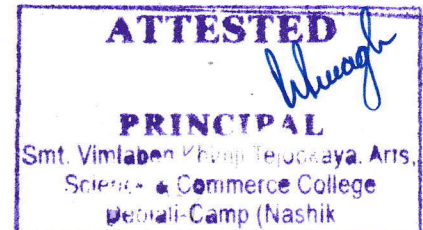 ATTESTED
PRINCIPAL
Smt. Vimlaben Arts,
Science & Commerce College
Deolali-Camp (Nashik